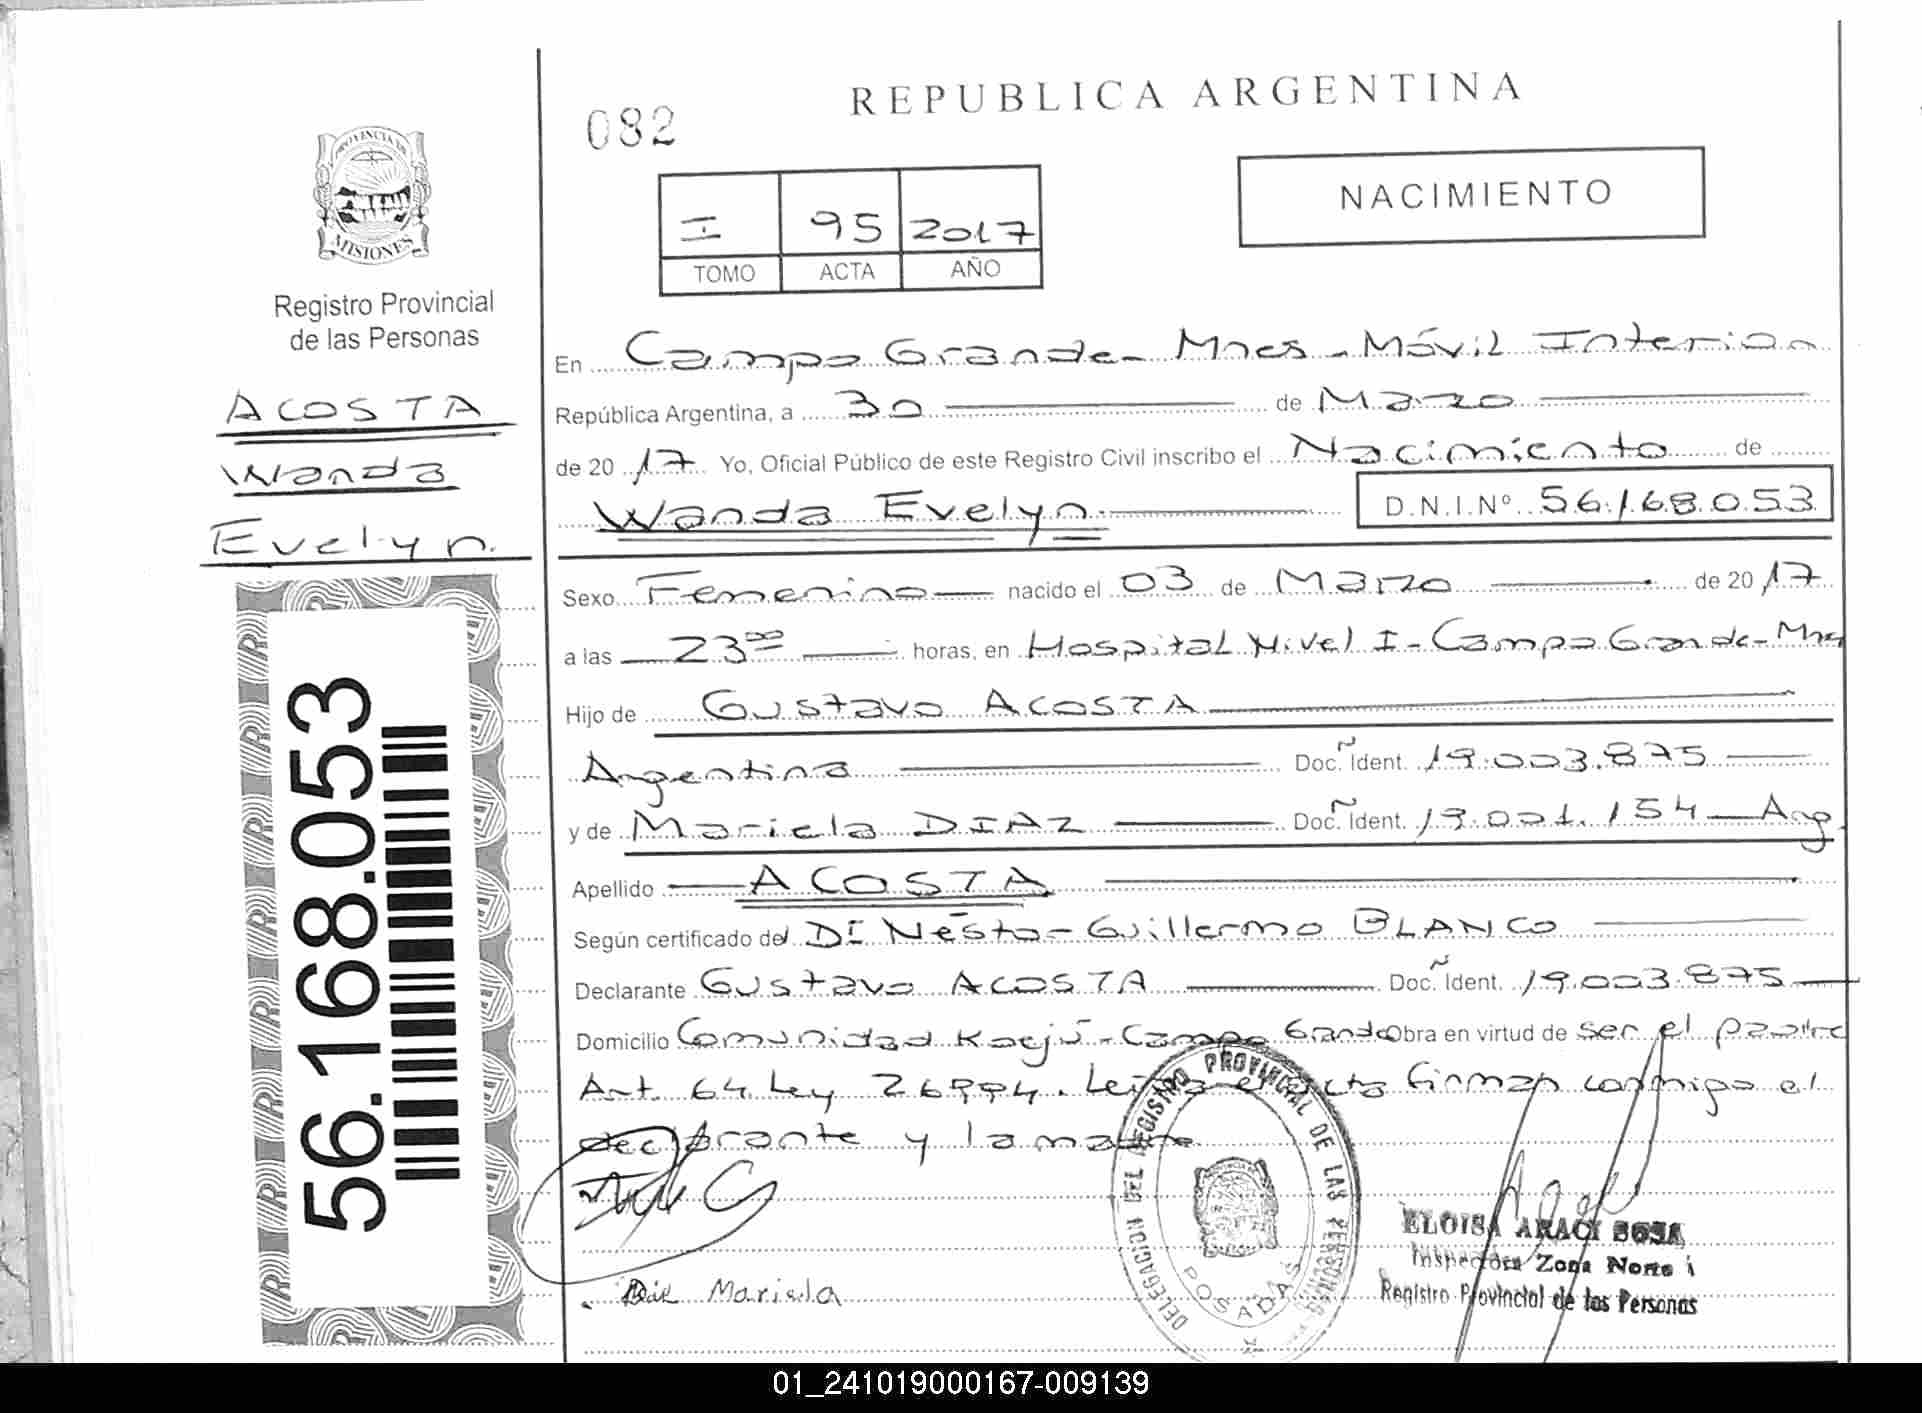 REPUBLICA ARGENTINA
082
NACIMIENTO
I 95 2017
TOMO ACTA AÑO
PROVINCIA DE
MISIONES
Registro Provincial
de las Personas
ACOSTA
Wanda
Evelyn.
56.168.053
En Campo Grande - Mnes - Móvil Interior
República Argentina, a 30 de Marzo
de 2017 Yo, Oficial Público de este Registro Civil inscribo el Nacimiento de
Wanda Evelyn. D.N.I.Nº 56.168.053
Sexo Femenino nacido el 03 de Marzo de 2017
a las 23⁰⁰ horas, en Hospital Nivel I - Campo Grande - Mnes
Hijo de Gustavo ACOSTA
Argentina Doc. Ident. 19.003.875
y de Mariela DIAZ Doc. Ident. 19.001.154 Arg.
Apellido ACOSTA
Según certificado del Néstor Guillermo BLANCO
Declarante Gustavo ACOSTA Doc. Ident. 19.003.875
Domicilio Comunidad - Campo Grande Obra en virtud de ser el padre
Art. 64 Ley 26994. Leída el acta firman conmigo el
declarante y la madre
DELEGACION DEL REGISTRO PROVINCIAL DE LAS PERSONAS
POSADAS
ELOISA ARACI SOSA
Inspectora Zona Norte i
Registro Provincial de las Personas
Mariela
01_241019000167-009139